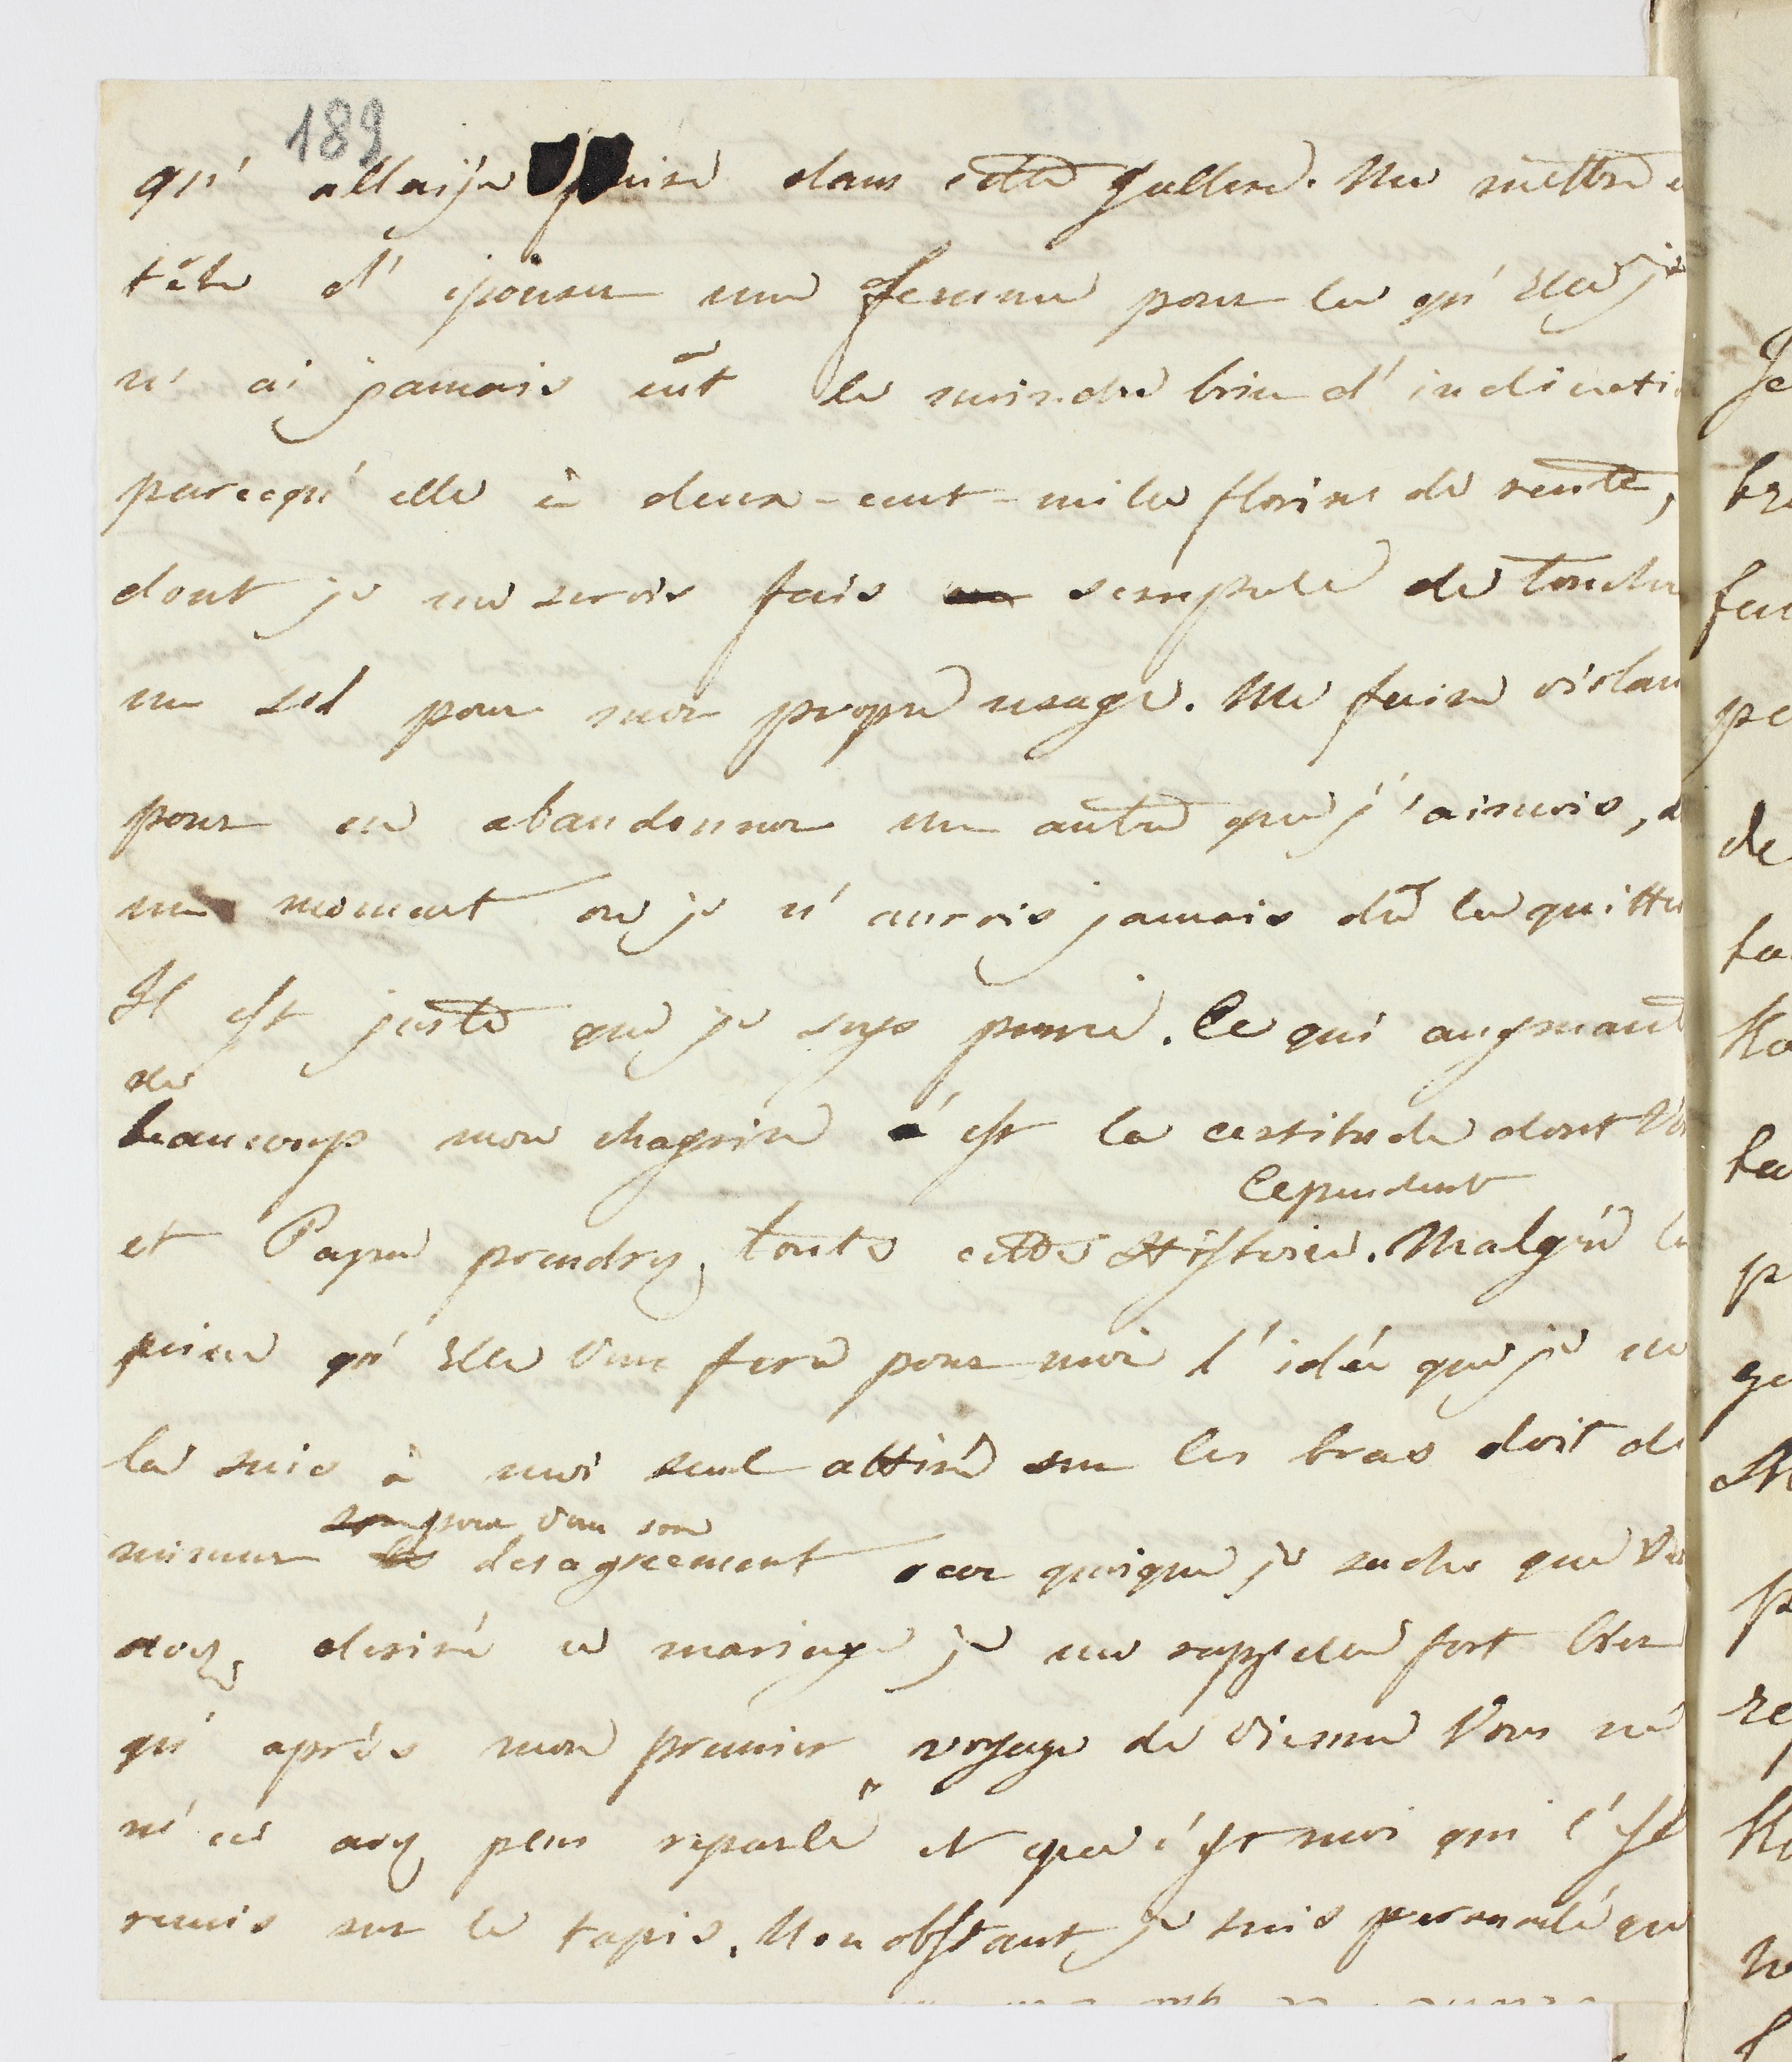 189
qu' allaije faire dans cette gallere. Me mettre e
tête d' epouser une femme pour la qu'elle je
n' ai jamais eût le moindre brin d' inclinati
parcequ' elle à deux-cent-mille florins de rente,
dont je me serois fais scrupule de toucher
un sol pour mon propre usage. Me faire violan
pour en abandonner un autre que j' aimois, d
un moment ou je n' aurois jamais dû la quitter
Il est juste que je soye punie. Ce qui augmant
de
beaucoup mon chagrin c'est la certitude dont Vo
Cependent
et Papa prendrez toute cette Histoire. Malgré la
peine qu'elle Vous fera pour moi l'idée que je me
la suis à moi seul attiré sur les bras doit di
son pour Vous son
minuer les desagreement car quoique je sache que Vo
avez desiré ce mariage je me rappelle fort bien
qu' après mon premier voyage de Vienne Vous ne
m' en avez plus reparlé et que c'est moi qui l'est
remis sur le tapis. Non obstant je suis persuadé que
Je
fe
de
ta
ta
p
re